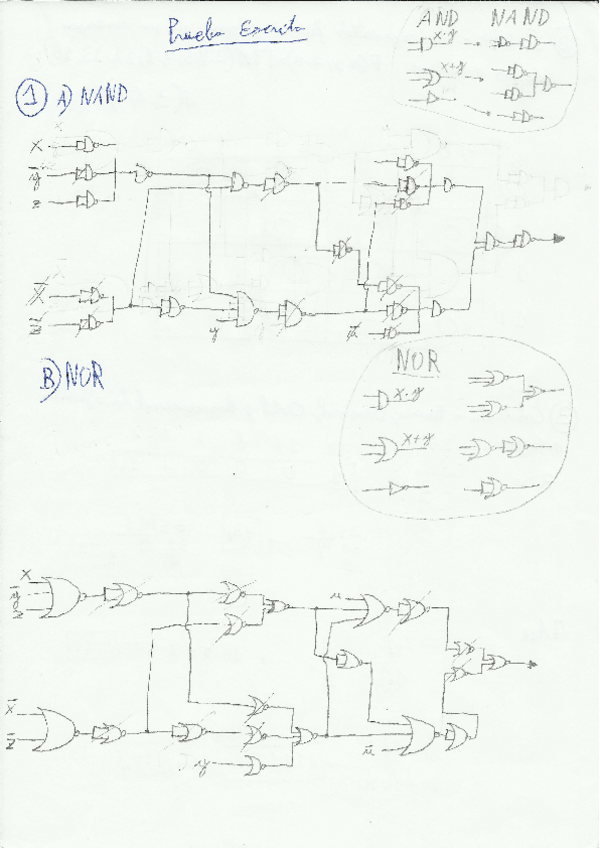 Prueba Escrita
AND NAND
x·y
x+y
1 A) NAND
X
ȳ
z
X̄
z̄
y
ū
B) NOR
NOR
x·y
x+y
X
ȳ
z
u
X̄
z̄
y
ū